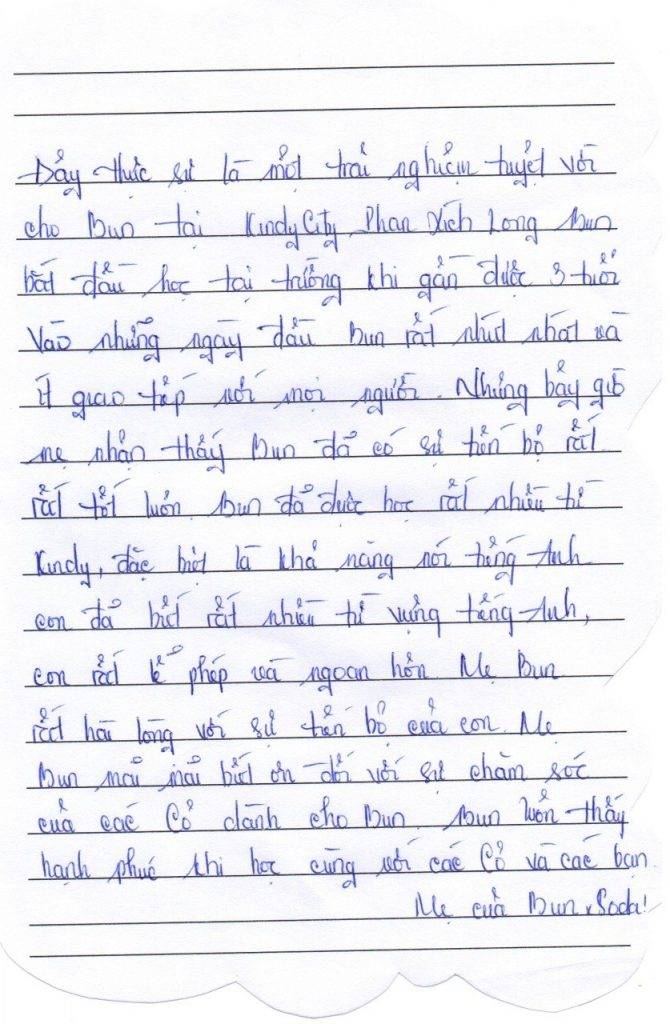 Đây thực sự là một trải nghiệm tuyệt vời
cho Bun tại KindyCity Phan Xích Long Bun
bắt đầu học tại trường khi gần được 3 tuổi
Vào những ngày đầu Bun rất nhút nhát và
ít giao tiếp với mọi người. Nhưng bây giờ
mẹ nhận thấy Bun đã có sự tiến bộ rất
rất tốt luôn. Bun đã được học rất nhiều từ
Kindy, đặc biệt là khả năng nói tiếng Anh
con đã biết rất nhiều từ vựng tiếng Anh,
con rất lễ phép và ngoan hơn. Mẹ Bun
rất hài lòng với sự tiến bộ của con. Mẹ
Bun mãi mãi biết ơn đối với sự chăm sóc
của các Cô dành cho Bun. Bun luôn thấy
hạnh phúc khi học cùng với các Cô và các bạn
Mẹ của Bun Soda!